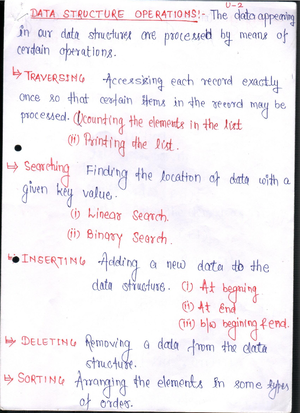 U-2
DATA STRUCTURE OPERATIONS:- The data appearing
in our data structures are processed by means of
certain operations.
↳ TRAVERSING Accessising each record exactly
once so that certain items in the record may be
processed. (i) counting the elements in the list
(ii) Printing the list.
↳ Searching Finding the location of data with a
given key value.
(i) Linear Search.
(ii) Binary Search.
↳ INSERTING Adding a new data to the
data structure. (i) At begning
(ii) At end
(iii) b/w begining & end.
↳ DELETING Removing a data from the data
structure.
↳ SORTING Arranging the elements in some types
of order.